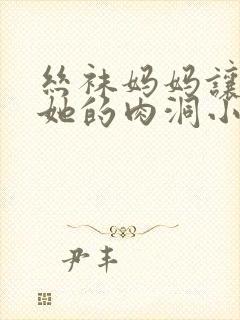 丝袜妈妈讓
她的肉洞小
尹丰